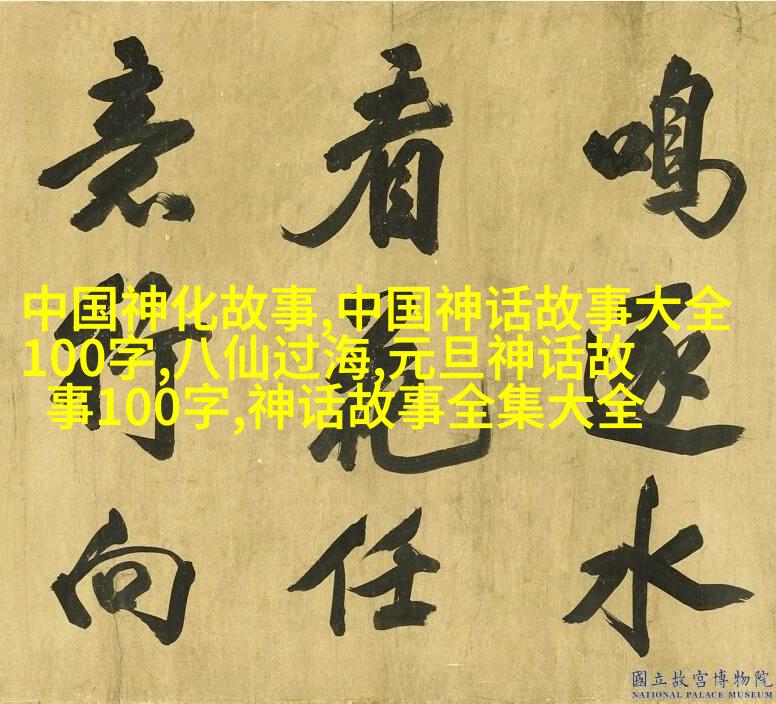 中国神化故事,中国神话故事大全
100字,八仙过海,元旦神话故
事100字,神话故事全集大全
鳴逐水
看花任
意得向
國立故宮博物院
NATIONAL PALACE MUSEUM